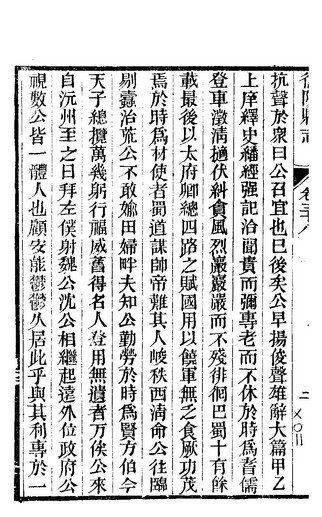 衡陽縣志 卷三十八 二 X○11
抗聲於衆曰公召宜也已後矣公早揚俊聲雄辭大篇甲乙
上庠繹史緝經强記洽聞貴而彌專老而不休於時爲耆儒
登車澂淸擿伏糾貪風烈巖巖嚴而不殘徘徊巴蜀十有餘
載最後以太府卿總四路之賦國用以饒軍無乏食厥功茂
焉於時爲材使者蜀道謀帥帝難其人峻秩西淸命公往臨
剔蠹治荒公不敢婾田婦畔夫知公勤勞於時爲賢方伯今
天子總攬萬幾躬行福威舊得名人登用無遺耆万俟公來
自沅州至之日拜左僕射魏公沈公相繼起遠外位政府公
視數公皆一體人也顧安能鬱鬱久居此乎與其利專於一